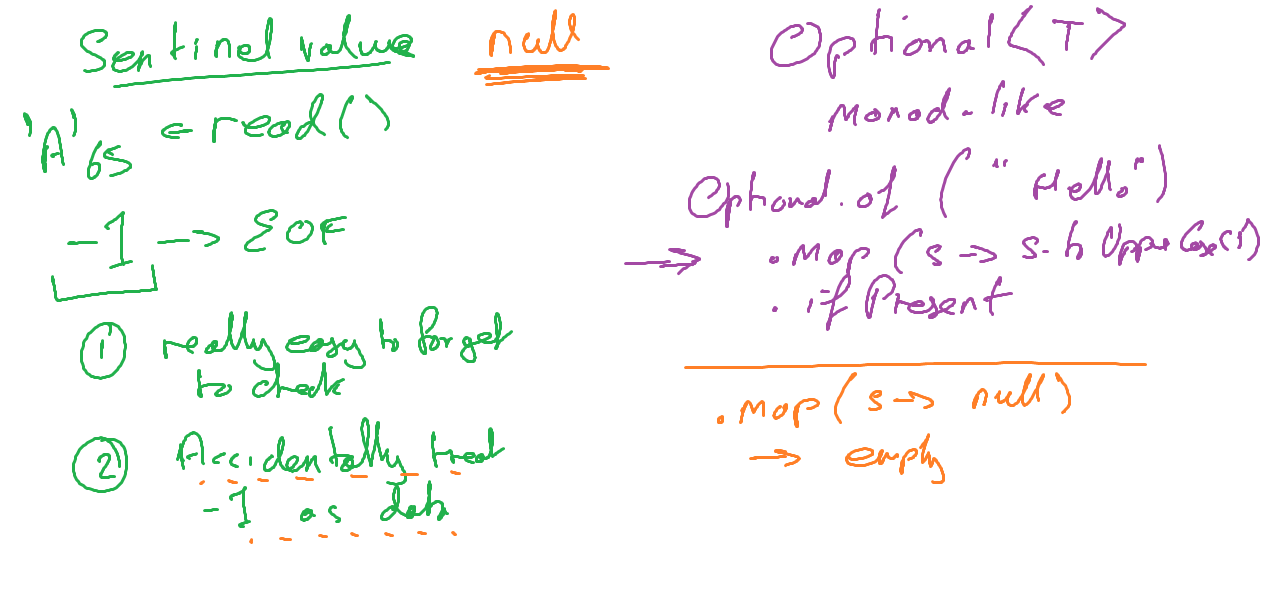 Sentinel value null
'A' 65 ← read()
-1 → EOF
① really easy to forget
to check
② Accidentally treat
-1 as data
Optional<T>
Monad-like
Optional.of("Hello")
→ .map(s → s.toUpperCase())
.ifPresent
.map(s → null)
→ empty